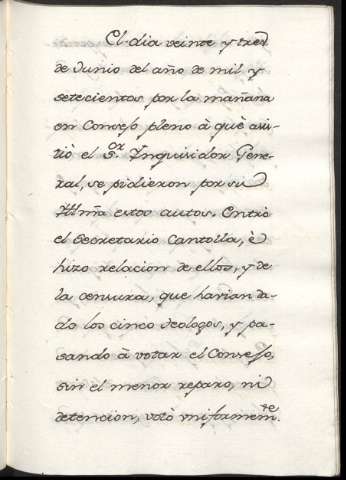 El dia veinte y tres
de Junio del año de mil y
setecientos por la mañana
en Consejo pleno à què asis-
tiò el S.or Inquisidor Gene-
ral, se pidieron por su
Illma estos autos. Entrò
el Secretario Cantolla, è
hizo relacion de ellos, y de
la censura, que havian da-
do los cinco Teologos, y pa-
sando à votar el Consejo,
sin el menor reparo, ni
detencion, votò uniformem.te